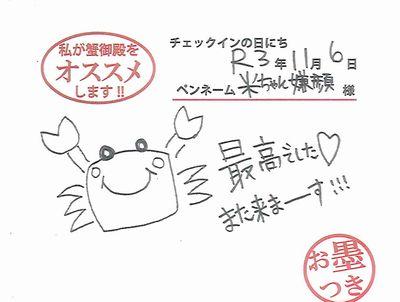 私が蟹御殿を
オススメ
します!!
チェックインの日にち
R3年11月6日
ペンネーム 米ちゃん嫌顔 様
最高でした♡
また来まーす!!!
お墨
つき